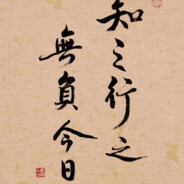 知之行之
無負今日